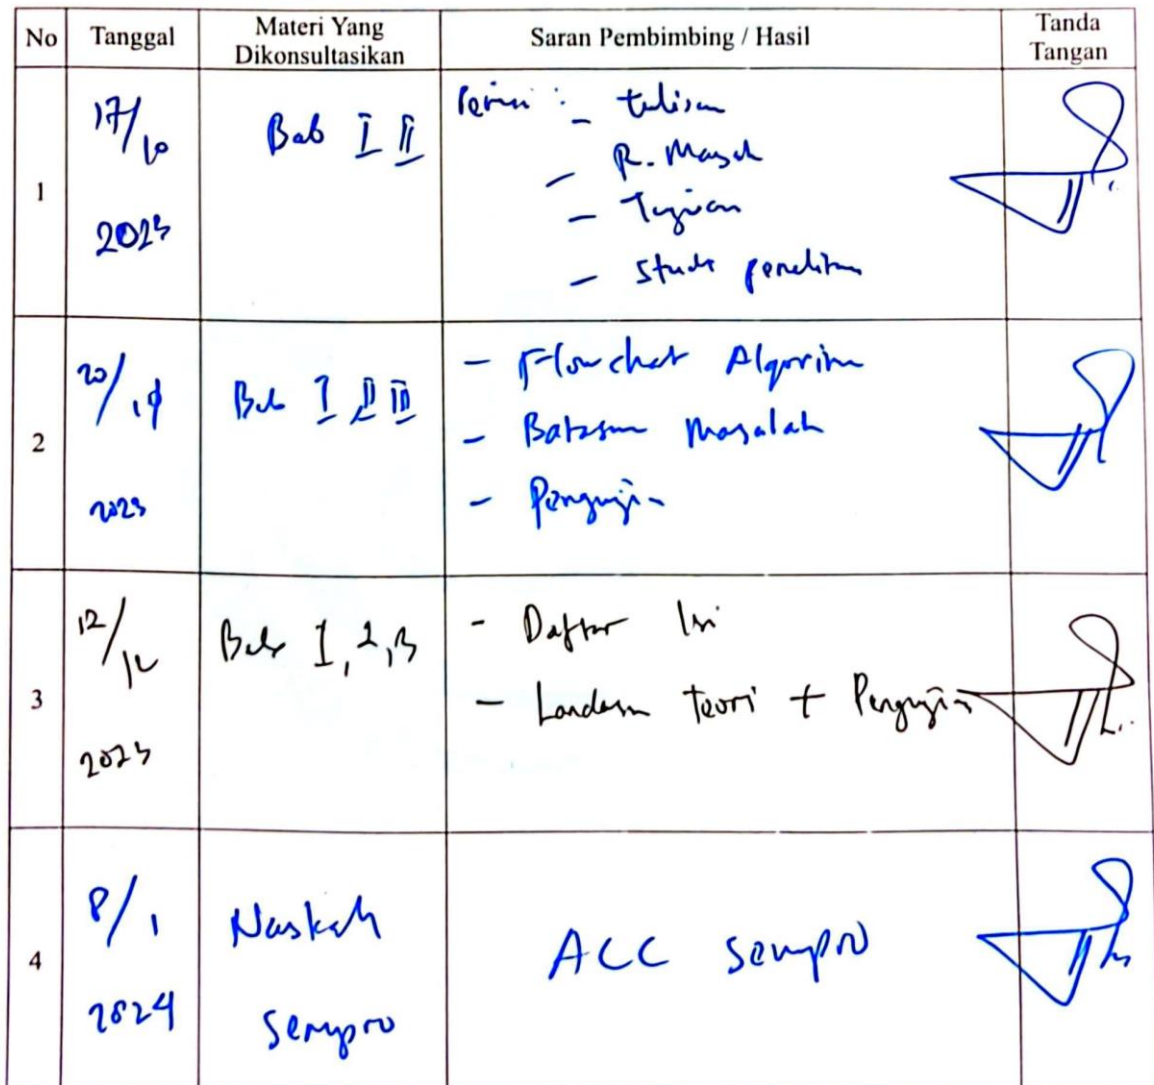 No Tanggal Materi Yang Dikonsultasikan Saran Pembimbing / Hasil Tanda Tangan
1 17/10 2023 Bab I II
- tulisan
- R. Masalah
- Tujuan
- Studi penelitian
2 20/ 2023 Bab I II III
- Flowchat Algoritma
- Batasan Masalah
- Pengujian
3 12/12 2023 Bab 1, 2, 3
- Daftar Isi
- Landasan Teori + Pengujian
4 8/1 2024 Naskah Sempro ACC Sempro